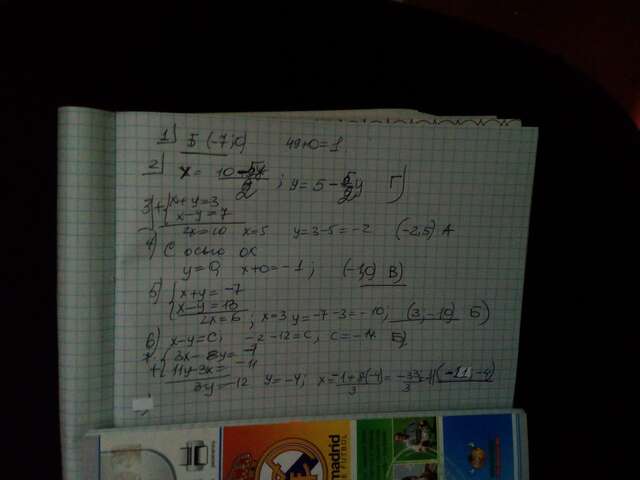 1) Б (-7;0) 49+0=1
2) x = 10-5y/2 ; y = 5 - 5/2 y Г)
3) + { x+y=3
x-y=7
2x=10 x=5 y=3-5=-2 (-2,5) А
4) С осью ох
y=0, x+0=-1; (-1,0) В)
5) { x+y=-7
x-y=13
2x=6; x=3 y=-7-3=-10; (3;-10) Б)
6) x-y=C; -2-12=C, C=-14 Б)
7. + { 3x-8y=-1
11y-3x=-11
3y=-12 y=-4; x= -1+8(-4)/3 = -33/3 = -11 (-11;-4)
madrid